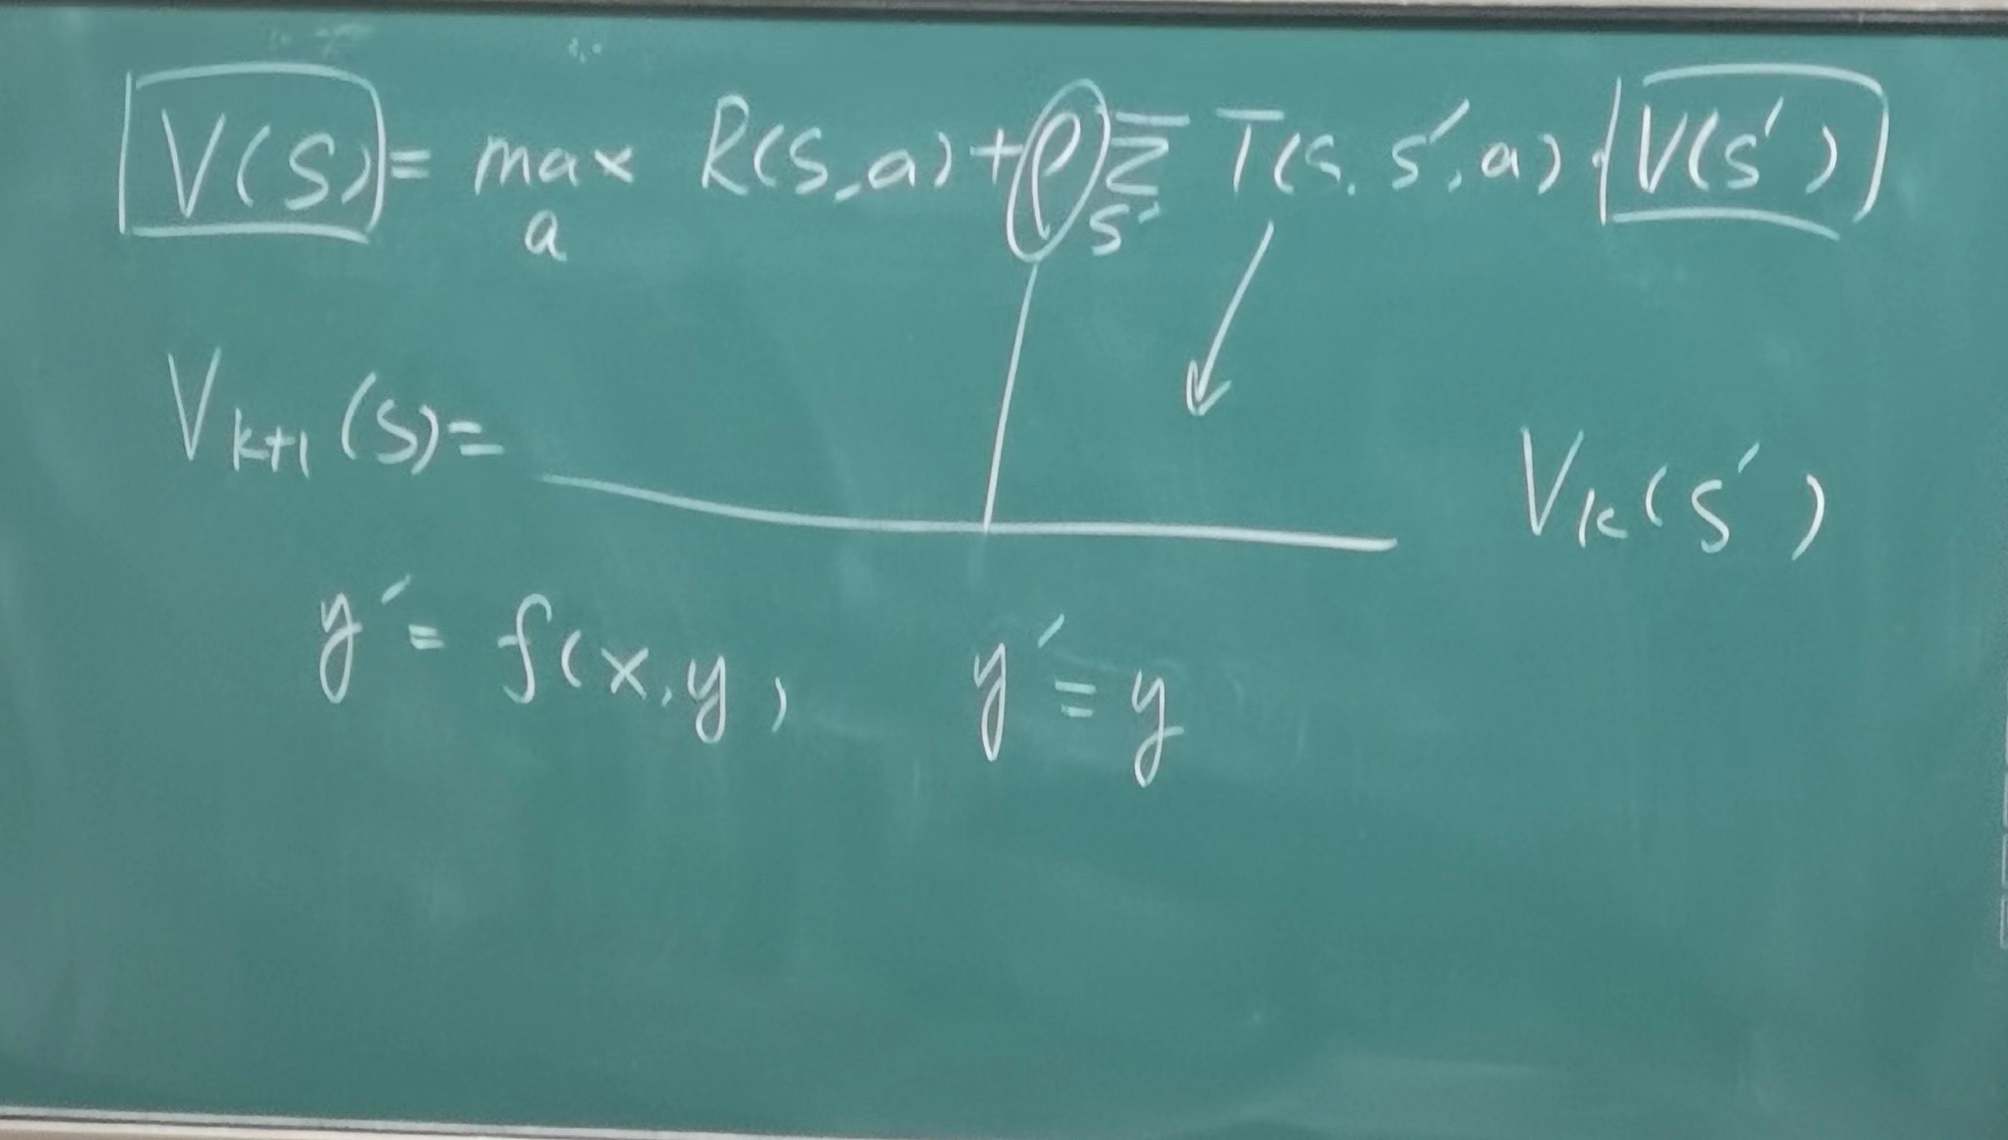 V(S) = max_a R(S,a) + ρ Σ_s' T(s,s',a) · V(s')
V_{k+1}(S) = V_k(s')
y' = f(x,y) y' = y